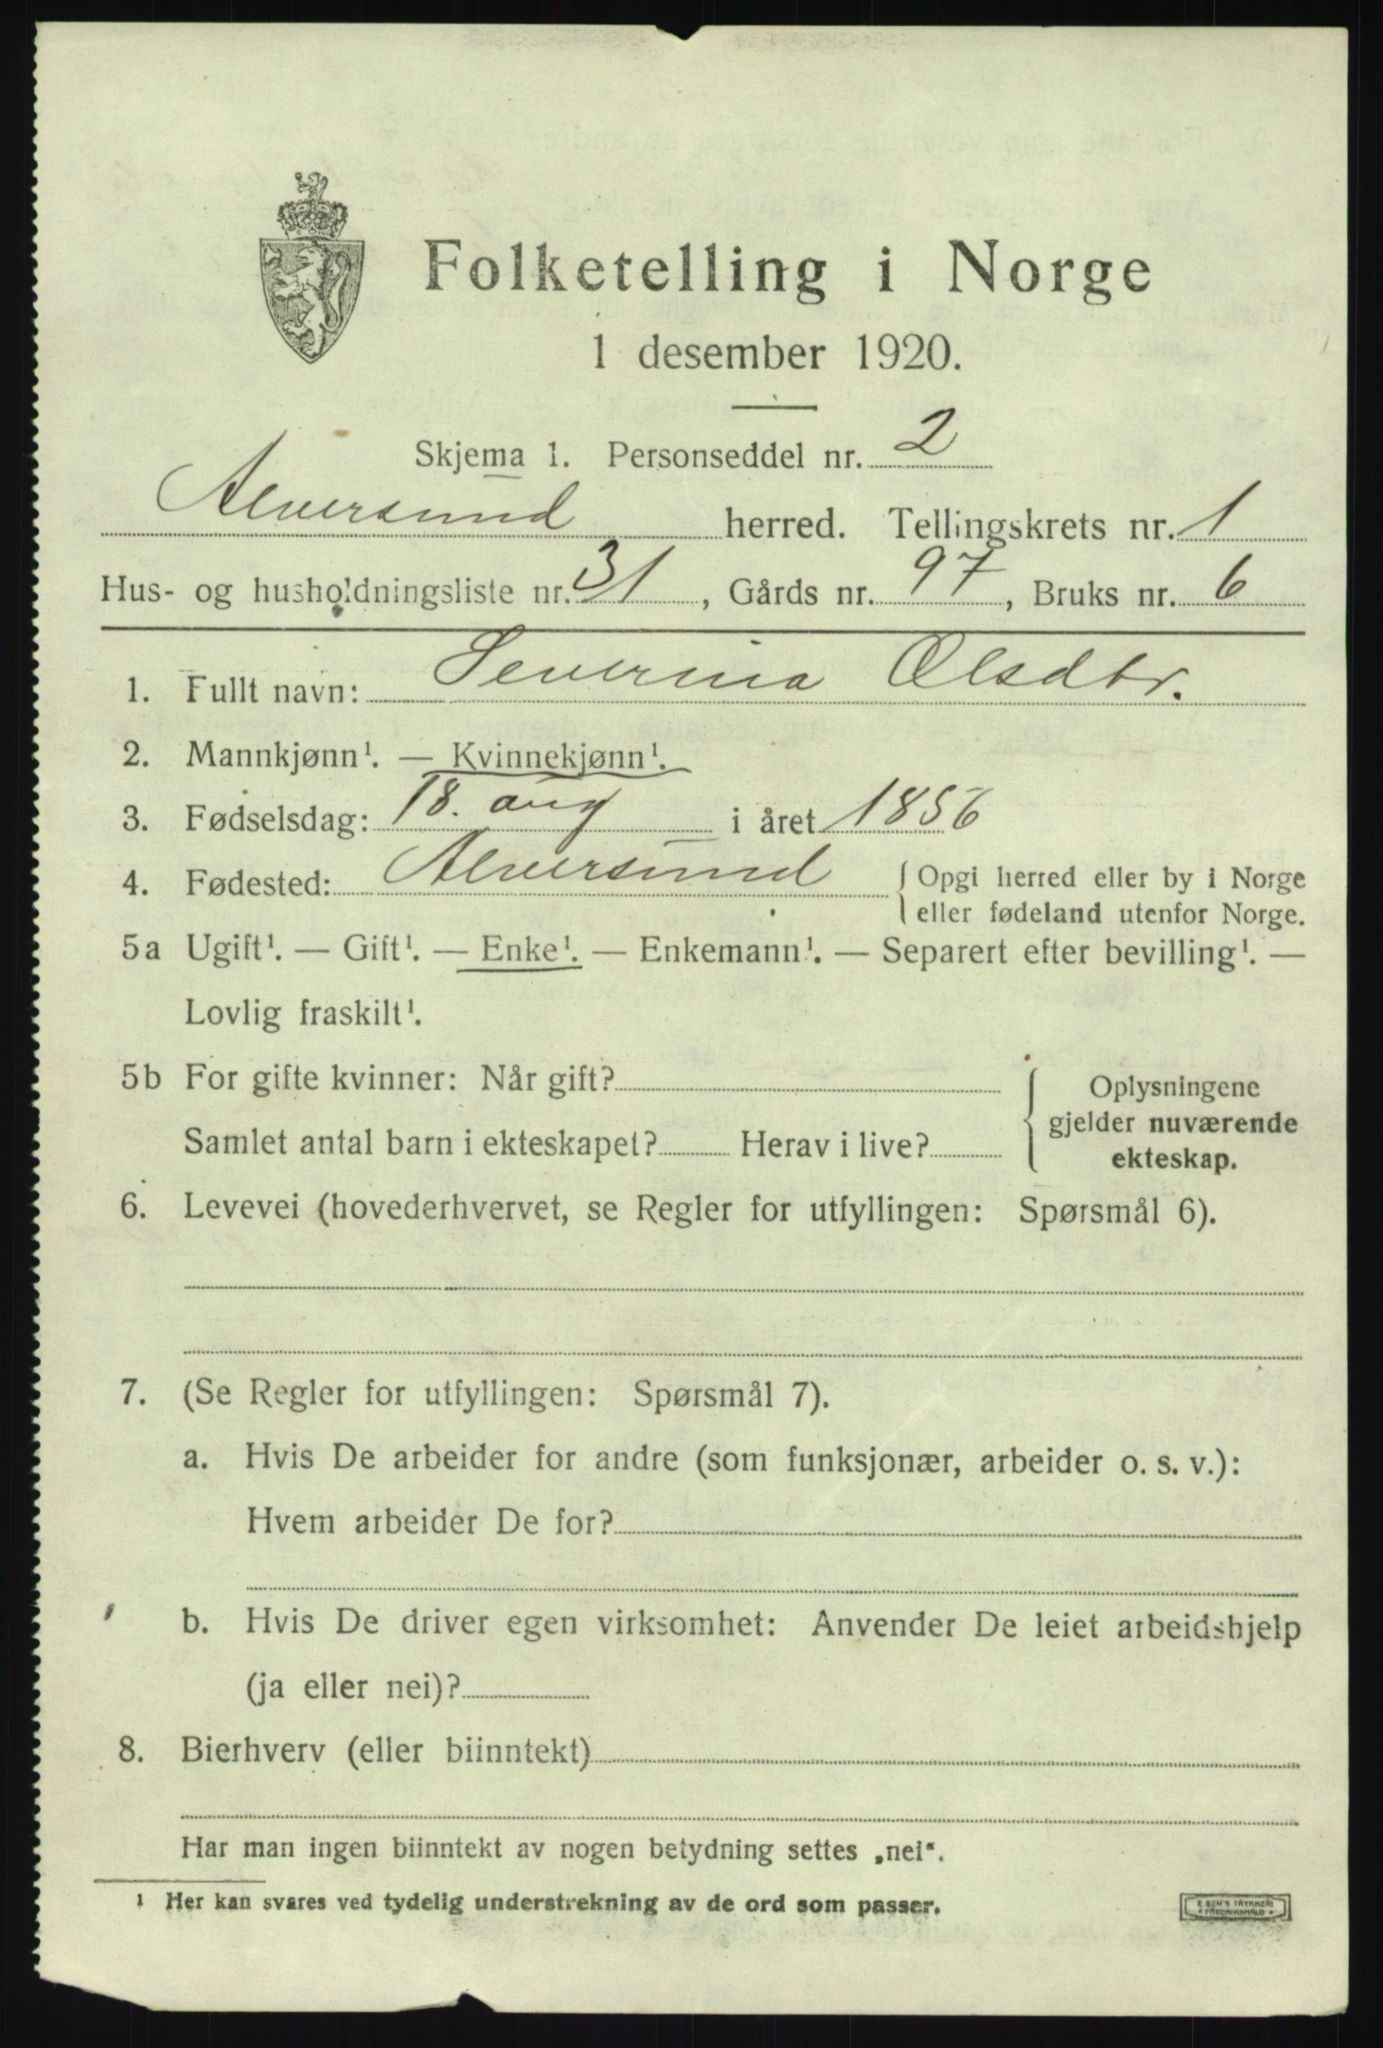 Folketelling i Norge
1 desember 1920.
Skjema 1. Personseddel nr. 2
Alversund herred. Tellingskrets nr. 1
Hus- og husholdningsliste nr. 31, Gårds nr. 97, Bruks nr. 6
1. Fullt navn: Severina Olsdtr.
2. Mannkjønn¹. — Kvinnekjønn¹.
3. Fødselsdag: 18. aug i året 1856
4. Fødested: Alversund { Opgi herred eller by i Norge
eller fødeland utenfor Norge.
5a Ugift¹. — Gift¹. — Enke¹. — Enkemann¹. — Separert efter bevilling¹. —
Lovlig fraskilt¹.
5b For gifte kvinner: Når gift? { Oplysningene
gjelder nuværende
Samlet antal barn i ekteskapet? Herav i live? ekteskap.
6. Levevei (hovederhvervet, se Regler for utfyllingen: Spørsmål 6).
7. (Se Regler for utfyllingen: Spørsmål 7).
a. Hvis De arbeider for andre (som funksjonær, arbeider o. s. v.):
Hvem arbeider De for?
b. Hvis De driver egen virksomhet: Anvender De leiet arbeidshjelp
(ja eller nei)?
8. Bierhverv (eller biinntekt)
Har man ingen biinntekt av nogen betydning settes „nei“.
¹ Her kan svares ved tydelig understrekning av de ord som passer.
TRYKKERI